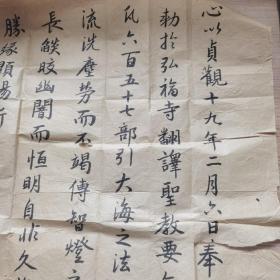 心以貞觀十九年二月六日奉
勅於弘福寺翻譯聖教要
凡六百五十七部引大海之法
流洗塵勞而不竭傳智燈之
長燄皎幽闇而恒明自非久
勝緣顯揚